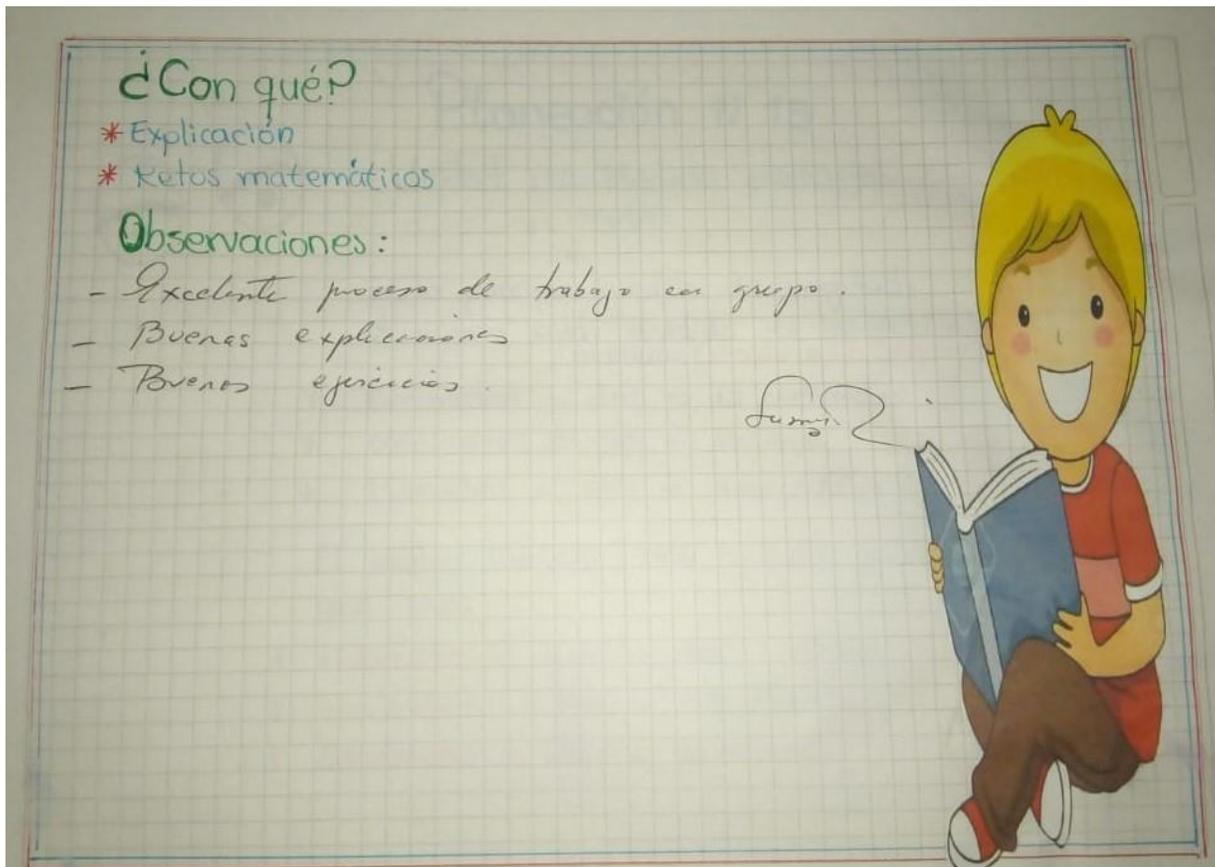 ¿Con qué?
* Explicación
* Retos matemáticos
Observaciones:
- Excelente proceso de trabajo en grupo.
- Buenas explicaciones
- Buenos ejercicios.